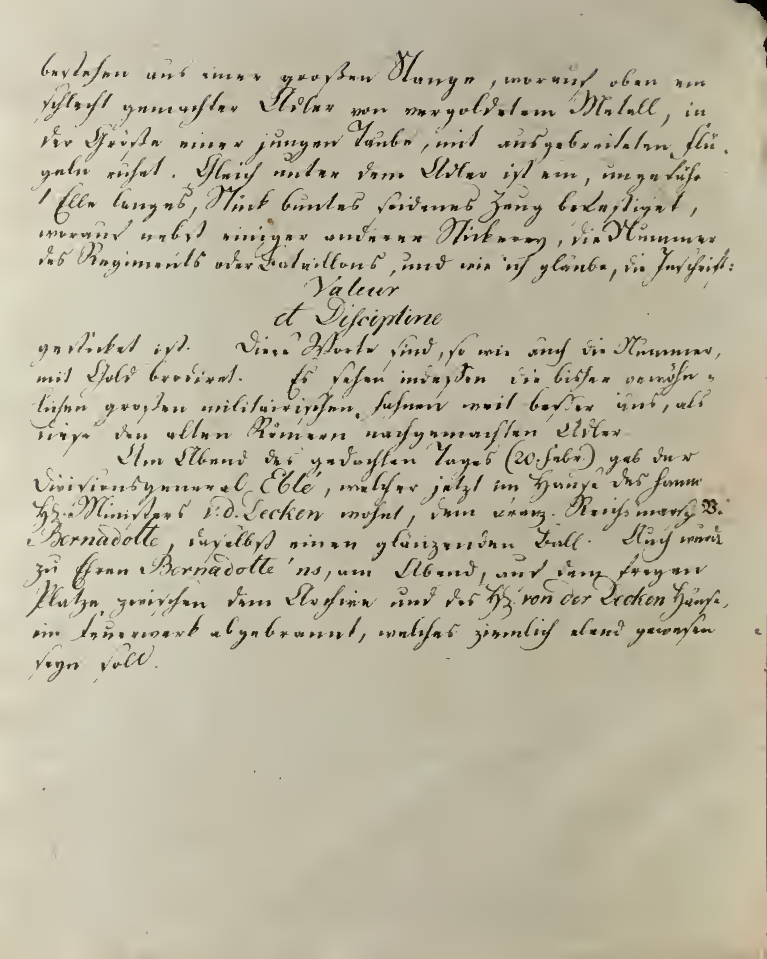 bestehen aus einer großen Stange, worauf oben ein
schlecht gemachter Adler von vergoldetem Metall, in
der Größe einer jungen Taube, mit ausgebreiteten Flü-
geln ruhet. Gleich unter dem Adler ist ein, ungefähr
1 Elle langes, Stück buntes seidenes Zeug befestiget,
worauf nebst einiger anderer Stickerey, die Nummer
des Regiments oder Bataillons, und wie ich glaube, die Inschrift:
Valeur
et Discipline
gesticket ist. Diese Worte sind, so wie auch die Nummer,
mit Gold brodiret. Es sehen indessen die bisher gewöhn-
lichen großen militairischen Fahnen weit besser aus, als
diese den alten Römern nachgemachten Adler
Am Abend des gedachten Tages (20. Febr.) gab der
Divisionsgeneral Eblé, welcher jetzt im Hause des hannov.
H. Ministers v. d. Decken wohnt, dem franz. Reichsmarsch. B.
Bernadotte, daselbst einen glänzenden Ball. Auch wurde
zu Ehren Bernadotte'ns, am Abend, auf dem freyen
Platze zwischen dem Archive und des H. von der Decken Hause,
ein Feuerwerk abgebrannt, welches ziemlich elend gewesen
seyn soll.